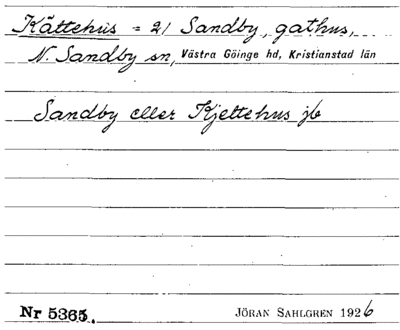 Kättehus = 21 Sandby, gathus,
N. Sandby sn, Västra Göinge hd, Kristianstad län
Sandby eller Kjettehus jb
Nr 5365. JÖRAN SAHLGREN 1926